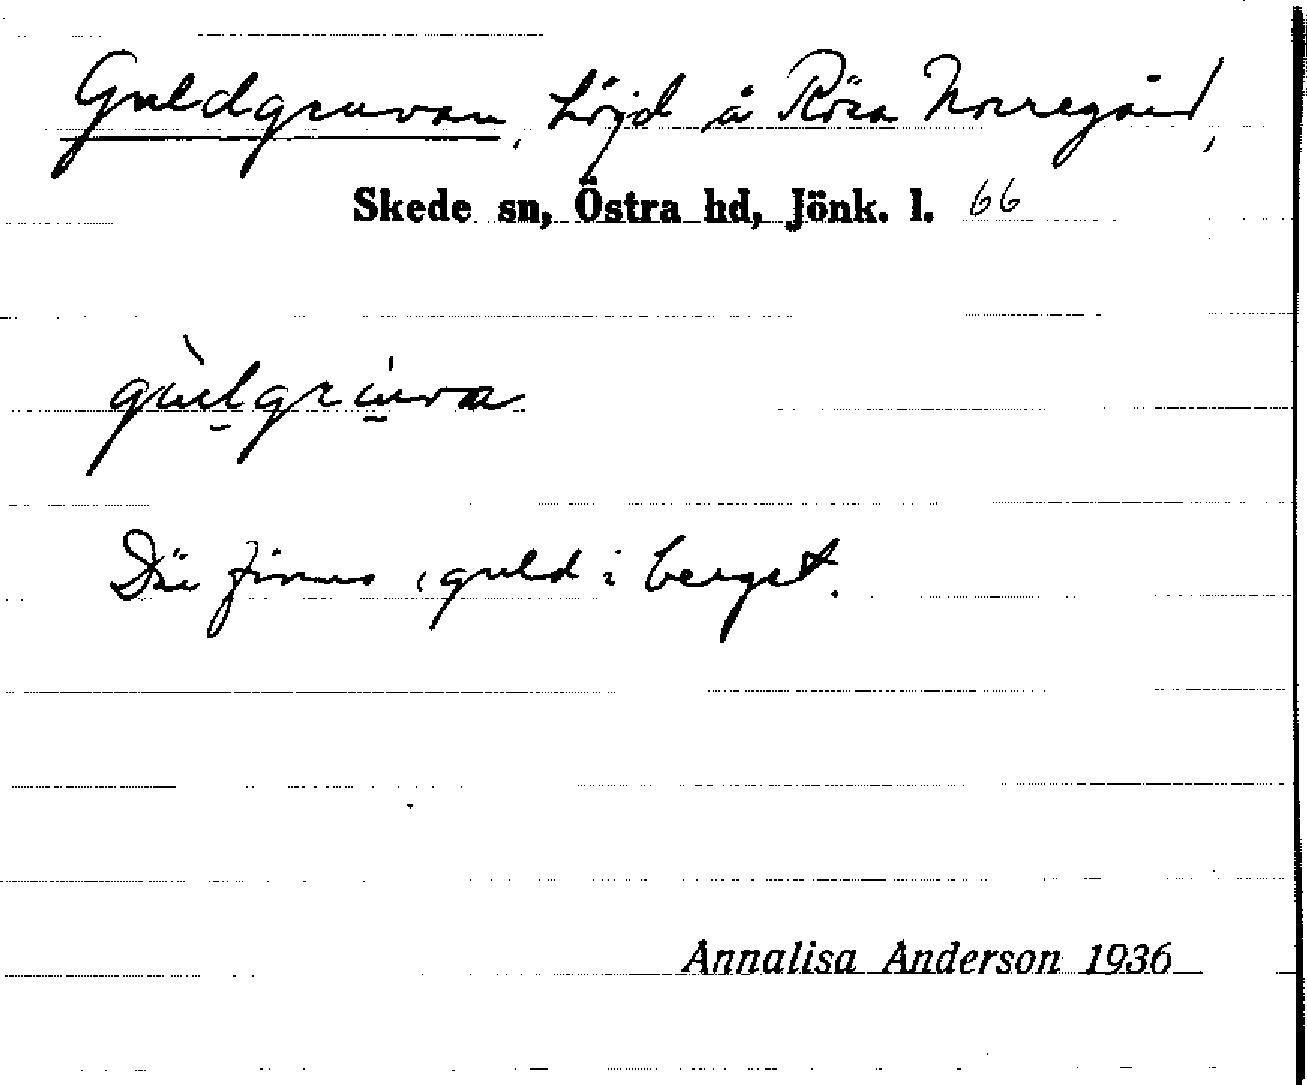 Guldgruvan, höjd å Rösa Norregård,
Skede sn, Östra hd, Jönk. l. 66
gu̇̀lgru̇́va
Där finnes guld i berget.
Annalisa Anderson 1936